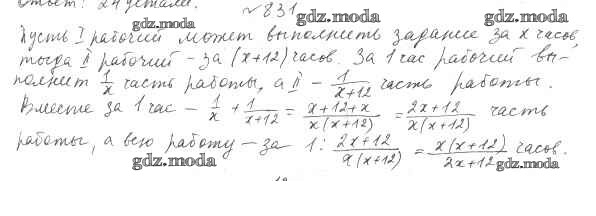 Ответ: 24 устами. №831
gdz.moda gdz.moda
Пусть I рабочий может выполнить задание за x часов,
тогда II рабочий - за (x+12) часов. За 1 час рабочий вы-
полнит 1/x часть работы, а II - 1/(x+12) часть работы.
gdz.moda gdz.moda
Вместе за 1 час - 1/x + 1/(x+12) = (x+12+x)/(x(x+12)) = (2x+12)/(x(x+12)) часть
работы, а всю работу - за 1 : (2x+12)/(x(x+12)) = (x(x+12))/(2x+12) часов.
gdz.moda gdz.moda